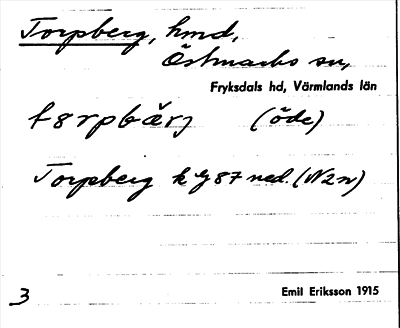 Torpberg, hmd,
Östmarks sn,
Fryksdals hd, Värmlands län
tǝrpbärj (öde)
Torpberg k 87 ned. (N2n)
3
Emil Eriksson 1915